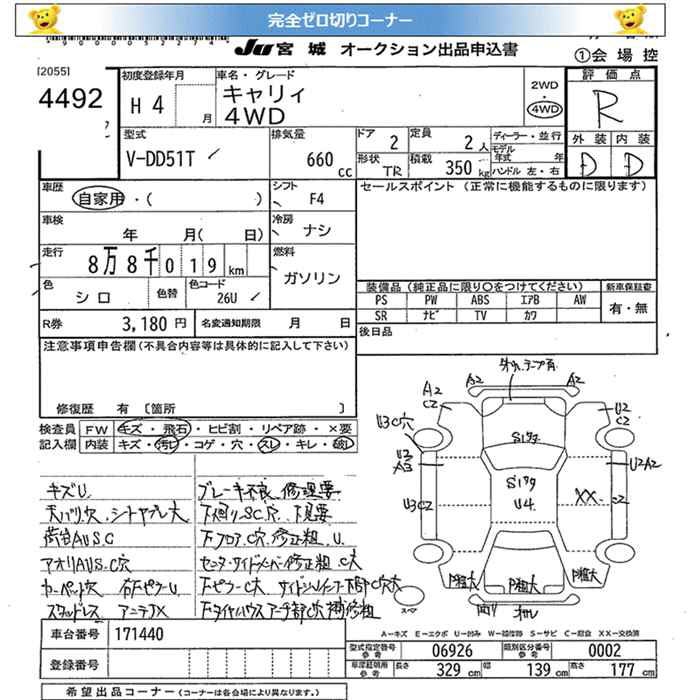 完全ゼロ切りコーナー
JU 宮城 オークション出品申込書
①会場控
[2055]
4492
初度登録年月
H4 月
車名・グレード
キャリィ
4WD
2WD
・
4WD
評価点
R
外装 内装
D D
型式
V-DD51T
排気量
660 cc
ドア 2
形状 TR
定員 2 人
積載 350 kg
ディーラー・並行
モデル年式 年
ハンドル 左・右
車歴
自家用・( )
シフト F4
セールスポイント (正常に機能するものに限ります)
車検
年 月( 日)
冷房 ナシ
走行
8万8千019 km
燃料
ガソリン
色
シロ
色替
色コード
26U
装備品 (純正品に限り○をつけてください)
新車保証書
PS PW ABS エアB AW
SR ナビ TV カワ
有・無
R券 3,180 円
名変通知期限 月 日
後日品
注意事項申告欄 (不具合内容等は具体的に記入して下さい)
修復歴 有 [箇所 ]
検査員記入欄
FW キズ・飛石・ヒビ割・リペア跡・×要
内装 キズ・汚レ・コゲ・穴・スレ・キレ・破レ
キズU
天バリ穴、シートヤブレ大
荷台AUSC
アオリAUS、C穴
カーペット穴 右Fピラー U
スタッドレス アンテナX
ブレーキ不良、修理要
下廻り、SC穴、下見要
下フロア、C穴、修正粗、U
下ピラーC大
A2 A2
A2
C2
U2
C2
U3C穴
U2
A3
S17g
S17g
U4
U3C2
U2A2
XX
C2
P粗大 P粗大 P粗大
スペア
A-キズ E-エクボ U-凹み W-補修跡 S-サビ C-腐食 XX-交換済
車台番号 171440
登録番号
型式指定番号 参考 06926
類別区分番号 参考 0002
車庫証明用 参考 長さ 329 cm 幅 139 cm 高さ 177 cm
希望出品コーナー (コーナーは各会場により異なります。)